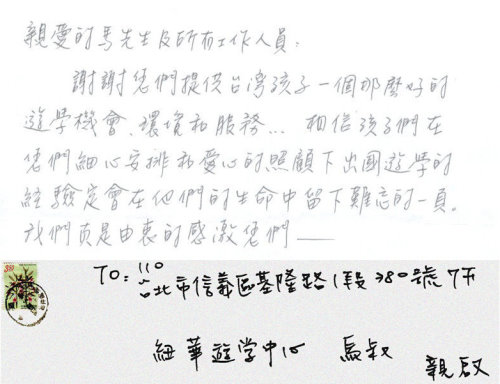 親愛的馬先生及所有工作人員:
謝謝您們提供台灣孩子一個那麼好的
遊學機會、環境和服務... 相信孩子們在
您們細心安排和愛心的照顧下出國遊學的
經驗定會在他們的生命中留下難忘的一頁。
我們真是由衷的感激您們——
TO: 110
台北市信義區基隆路1段380號7F
紐華遊学中心 馬叔
親啟